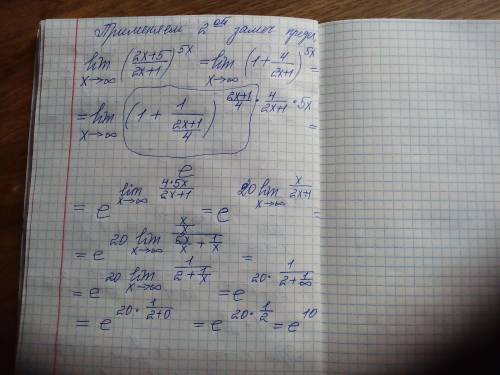 Применяем 2ой замеч предел
lim x→∞ ((2x+5)/(2x+1))^5x = lim x→∞ (1 + 4/(2x+1))^5x =
= lim x→∞ (1 + 1/((2x+1)/4))^((2x+1)/4 · 4/(2x+1) · 5x) =
e
= e^(lim x→∞ (4·5x)/(2x+1)) = e^(20 lim x→∞ x/(2x+1)) =
= e^(20 lim x→∞ (x/x)/(2x/x + 1/x)) =
= e^(20 lim x→∞ 1/(2 + 1/x)) = e^(20 · 1/(2 + 1/∞))
= e^(20 · 1/(2+0)) = e^(20 · 1/2) = e^10